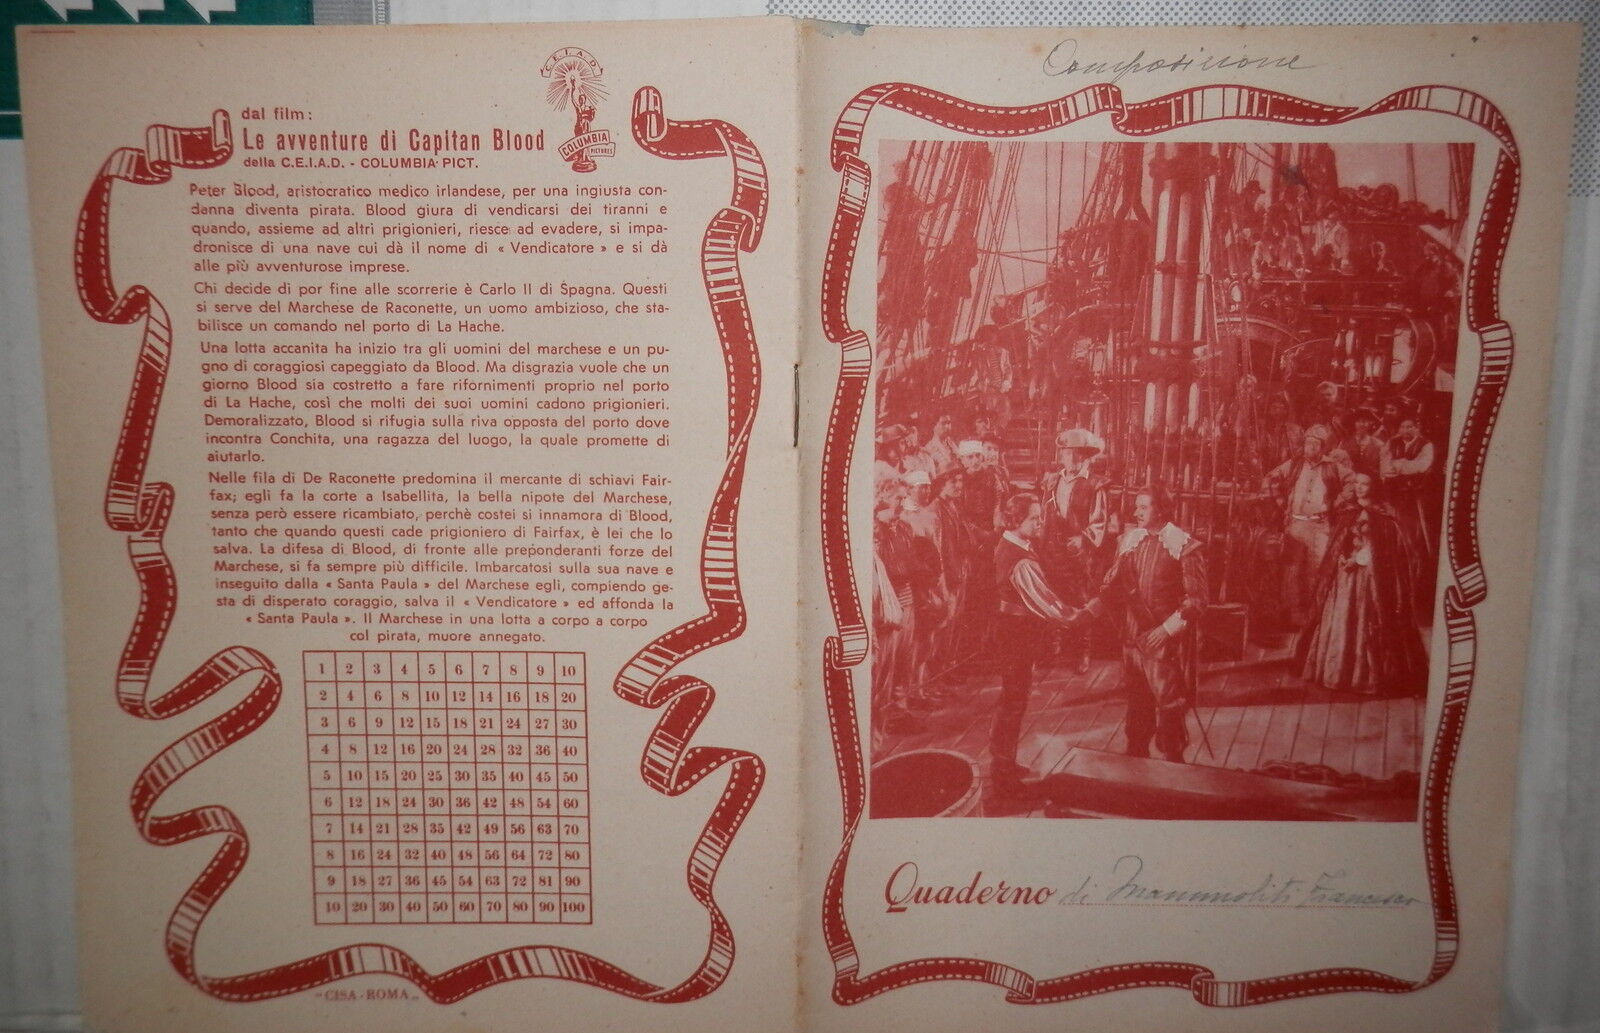 C.E.I.A.D.
COLUMBIA
PICTURES
dal film:
Le avventure di Capitan Blood
della C.E.I.A.D. - COLUMBIA PICT.
Peter Blood, aristocratico medico irlandese, per una ingiusta con-
danna diventa pirata. Blood giura di vendicarsi dei tiranni e
quando, assieme ad altri prigionieri, riesce ad evadere, si impa-
dronisce di una nave cui dà il nome di « Vendicatore » e si dà
alle più avventurose imprese.
Chi decide di por fine alle scorrerie è Carlo II di Spagna. Questi
si serve del Marchese de Raconette, un uomo ambizioso, che sta-
bilisce un comando nel porto di La Hache.
Una lotta accanita ha inizio tra gli uomini del marchese e un pu-
gno di coraggiosi capeggiato da Blood. Ma disgrazia vuole che un
giorno Blood sia costretto a fare rifornimenti proprio nel porto
di La Hache, così che molti dei suoi uomini cadono prigionieri.
Demoralizzato, Blood si rifugia sulla riva opposta del porto dove
incontra Conchita, una ragazza del luogo, la quale promette di
aiutarlo.
Nelle fila di De Raconette predomina il mercante di schiavi Fair-
fax; egli fa la corte a Isabellita, la bella nipote del Marchese,
senza però essere ricambiato, perchè costei si innamora di Blood,
tanto che quando questi cade prigioniero di Fairfax, è lei che lo
salva. La difesa di Blood, di fronte alle preponderanti forze del
Marchese, si fa sempre più difficile. Imbarcatosi sulla sua nave e
inseguito dalla « Santa Paula » del Marchese egli, compiendo ge-
sta di disperato coraggio, salva il « Vendicatore » ed affonda la
« Santa Paula ». Il Marchese in una lotta a corpo a corpo
col pirata, muore annegato.
1 2 3 4 5 6 7 8 9 10
2 4 6 8 10 12 14 16 18 20
3 6 9 12 15 18 21 24 27 30
4 8 12 16 20 24 28 32 36 40
5 10 15 20 25 30 35 40 45 50
6 12 18 24 30 36 42 48 54 60
7 14 21 28 35 42 49 56 63 70
8 16 24 32 40 48 56 64 72 80
9 18 27 36 45 54 63 72 81 90
10 20 30 40 50 60 70 80 90 100
"CISA-ROMA"
Composizione
Quaderno di Mammoliti Francesco